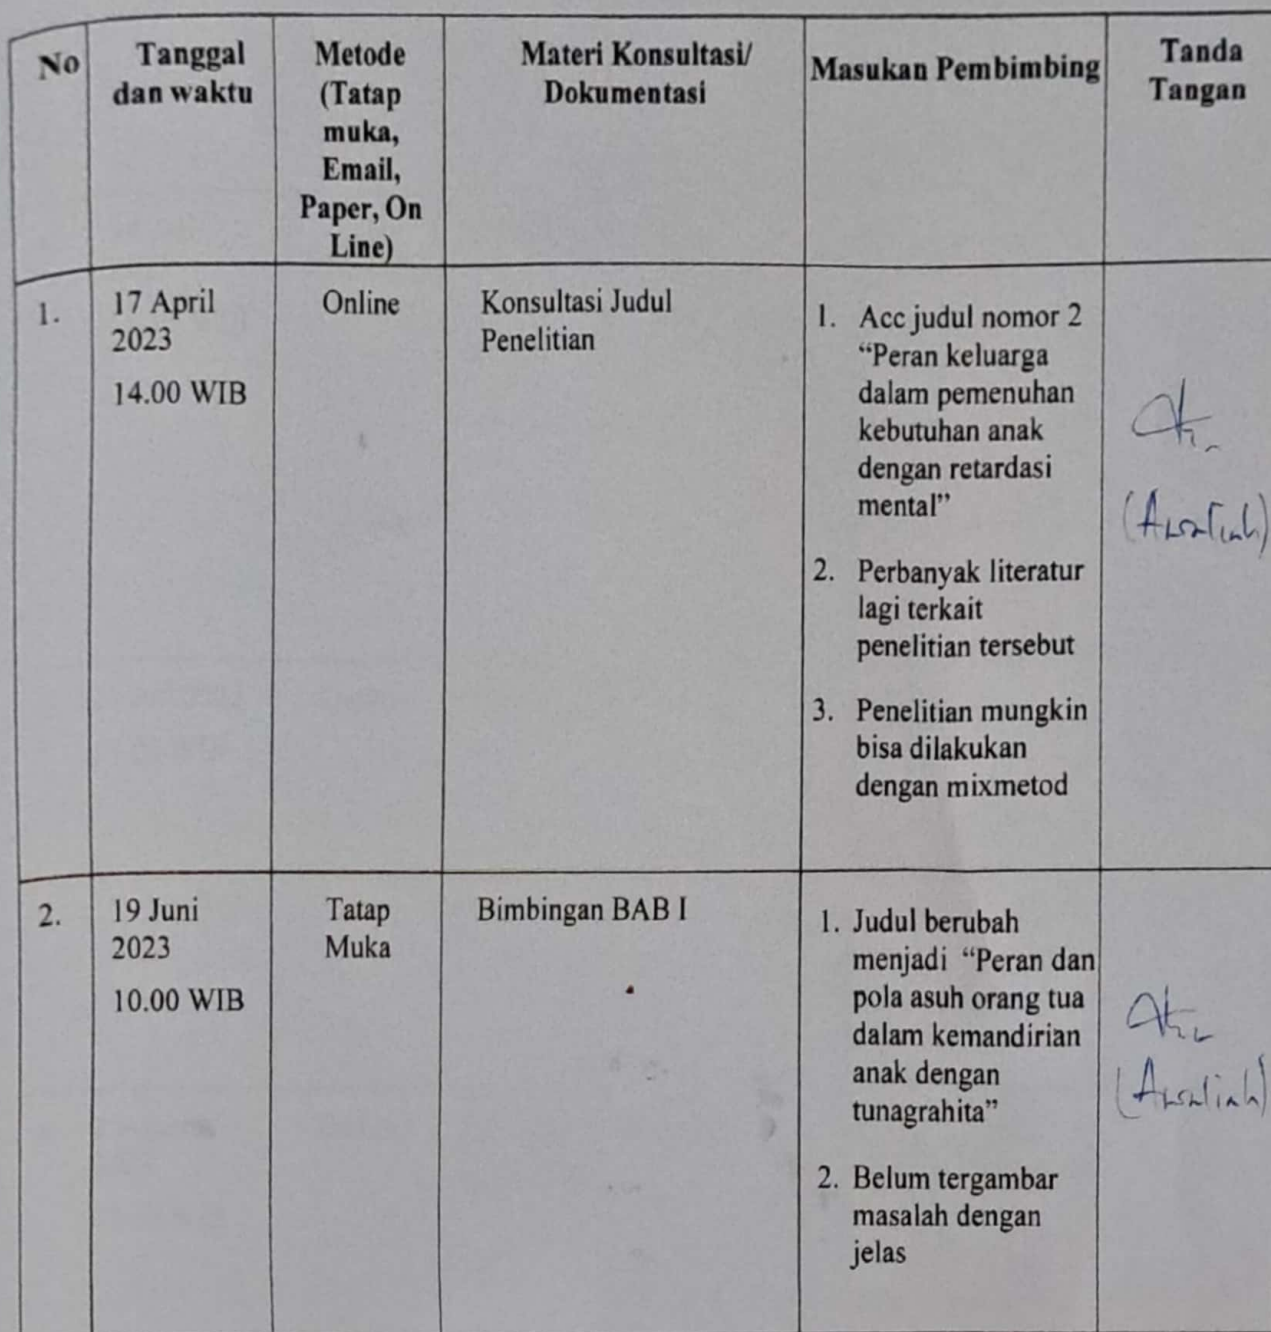 No
Tanggal
dan waktu
Metode
(Tatap
muka,
Email,
Paper, On
Line)
Materi Konsultasi/
Dokumentasi
Masukan Pembimbing
Tanda
Tangan
1.
17 April
2023
14.00 WIB
Online
Konsultasi Judul
Penelitian
1. Acc judul nomor 2
“Peran keluarga
dalam pemenuhan
kebutuhan anak
dengan retardasi
mental”
2. Perbanyak literatur
lagi terkait
penelitian tersebut
3. Penelitian mungkin
bisa dilakukan
dengan mixmetod
2.
19 Juni
2023
10.00 WIB
Tatap
Muka
Bimbingan BAB I
1. Judul berubah
menjadi “Peran dan
pola asuh orang tua
dalam kemandirian
anak dengan
tunagrahita”
2. Belum tergambar
masalah dengan
jelas